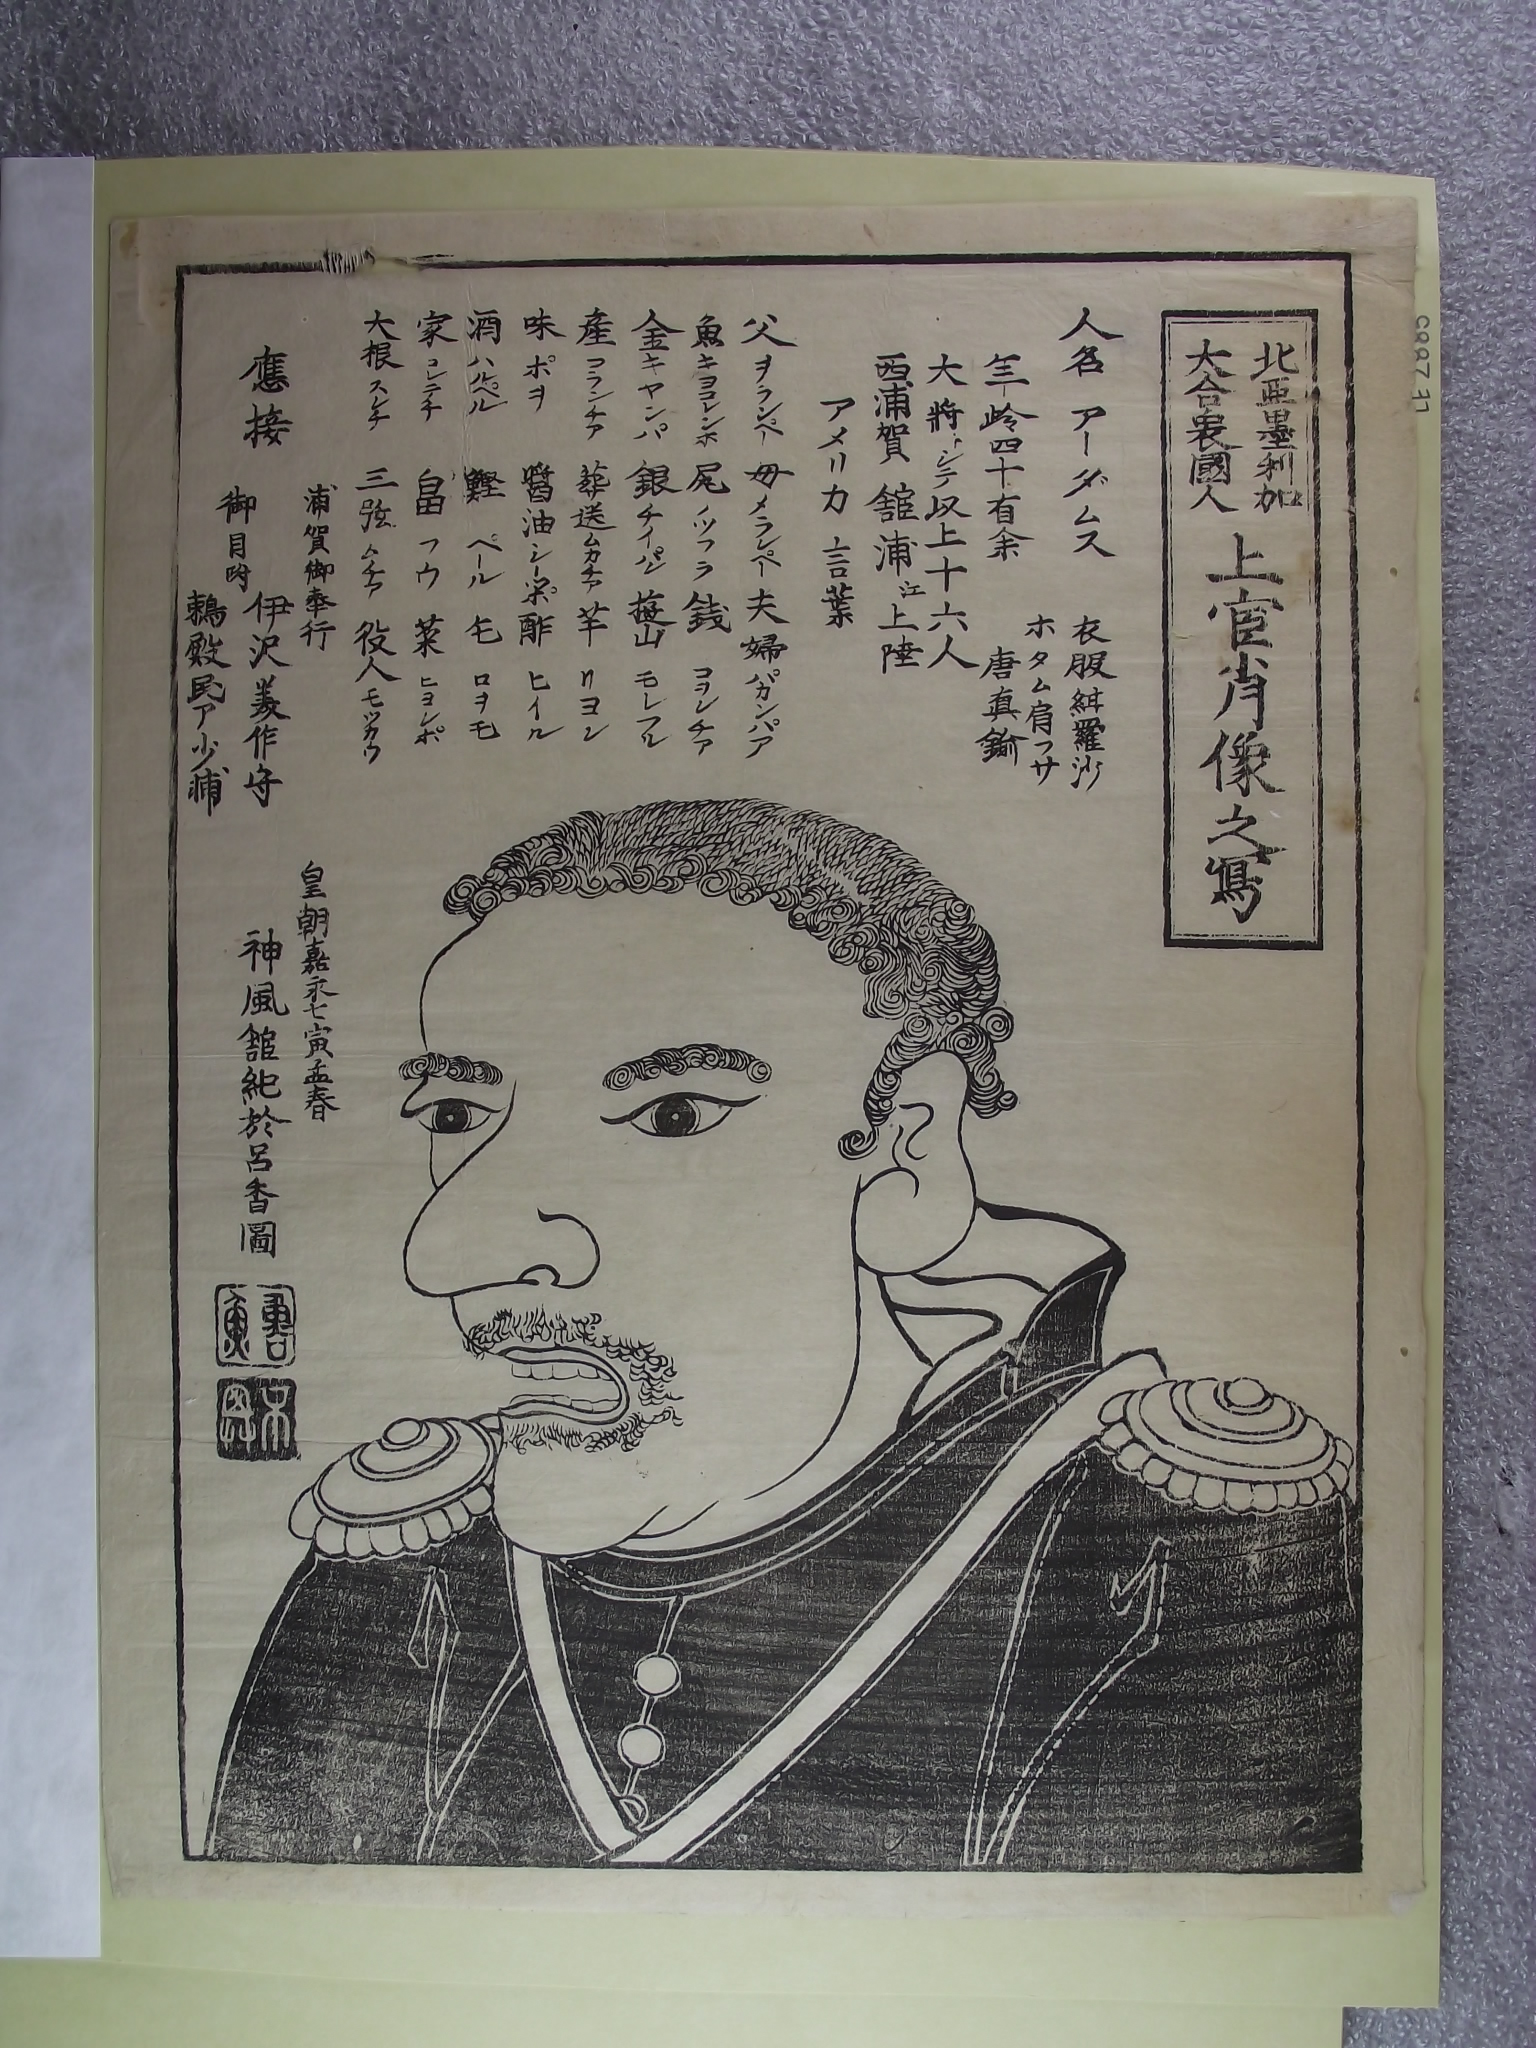 北亜墨利加
大合衆國人
上官肖像之寫
人名 アーダムス
衣服 紺羅沙
ホタム肩フサ
唐真鍮
年岭四十有余
大將トシテ以上十六人
西浦賀 舘浦江上陸
アメリカ 言葉
父 ヲランペー 母 メランペー 夫婦 パカンパア
魚 キヨコレンホ 尾 ノツフラ 銭 コヨレチア
金 キヤンパ 銀 チイパン 莚山 モレフル
産 コランチア 葬送 ムカチア 芋 リヨン
味 ポヲ 醤油 シー 酢 ヒイル
酒 ハルペル 鰹 ペール 屯 ロヲモ
家 コレテチ 畠 フウ 菜 ヒヨレポ
大根 スレチ 三弦 ムチア 役人 モツカウ
應接
浦賀御奉行
伊沢美作守
御目附
鵜殿民ア少輔
皇朝嘉永七寅孟春
神風舘紀於呂香圖